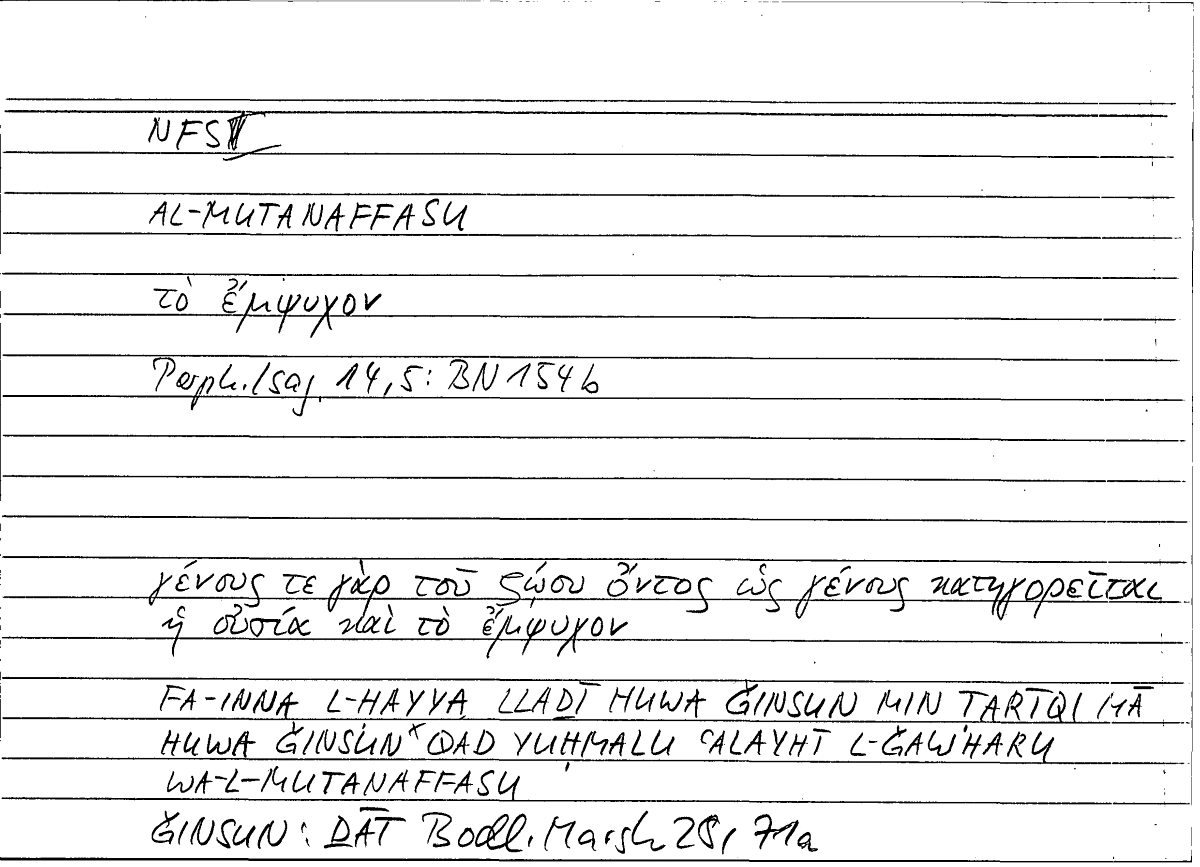 NFS V
AL-MUTANAFFASU
τὸ ἔμψυχον
Porph. Isag. 14,5: BN 154 b
γένους τε γὰρ τοῦ ζῴου ὄντος ὡς γένους κατηγορεῖται
ἡ οὐσία καὶ τὸ ἔμψυχον
FA-INNA L-ḤAYYA LLAḎĪ HUWA ǦINSUN MIN ṬARĪQI MĀ
HUWA ǦINSUNˣ QAD YUḤMALU ʿALAYHĪ L-ǦAWHARU
WA-L-MUTANAFFASU
ǦINSUN: ḎĀT Bodl. Marsh 28, 71a